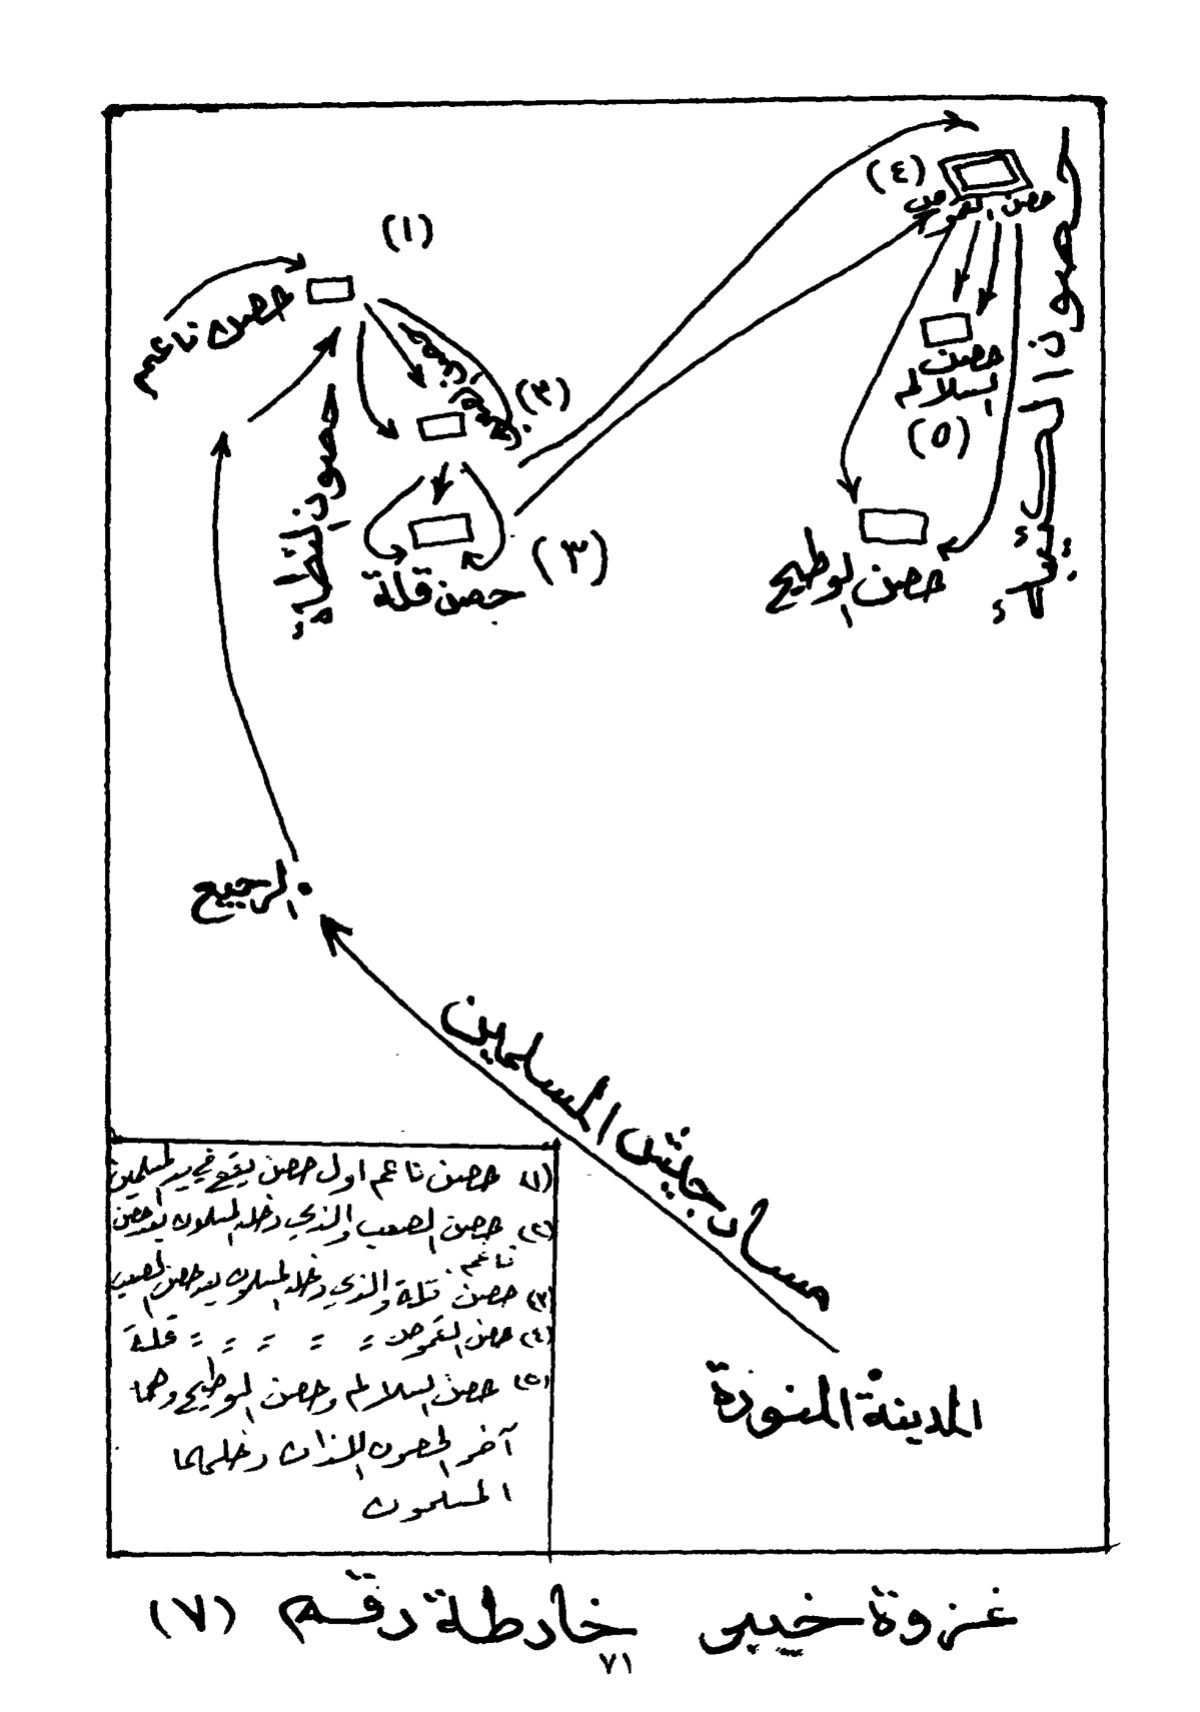 (١)
حصن ناعم
حصون النطاة
حصن الصعب
(٣)
حصن قلة
(٣)
(٤)
حصن القموص
حصن السلالم
(٥)
حصن الوطيح
الرجيع
مسار جيش المسلمين
المدينة المنورة
(١) حصن ناعم اول حصن يقع في يد المسلمين
(٢) حصن الصعب والذي دخله المسلمون بعد حصن
ناعم.
(٣) حصن قلة والذي دخله المسلمون بعد حصن الصعب
(٤) حصن القموص = = = = = قلة
(٥) حصن السلالم وحصن الوطيح وهما
آخر الحصون اللذان دخلهما
المسلمون
غزوة خيبر خارطة رقم (٧)
٧١